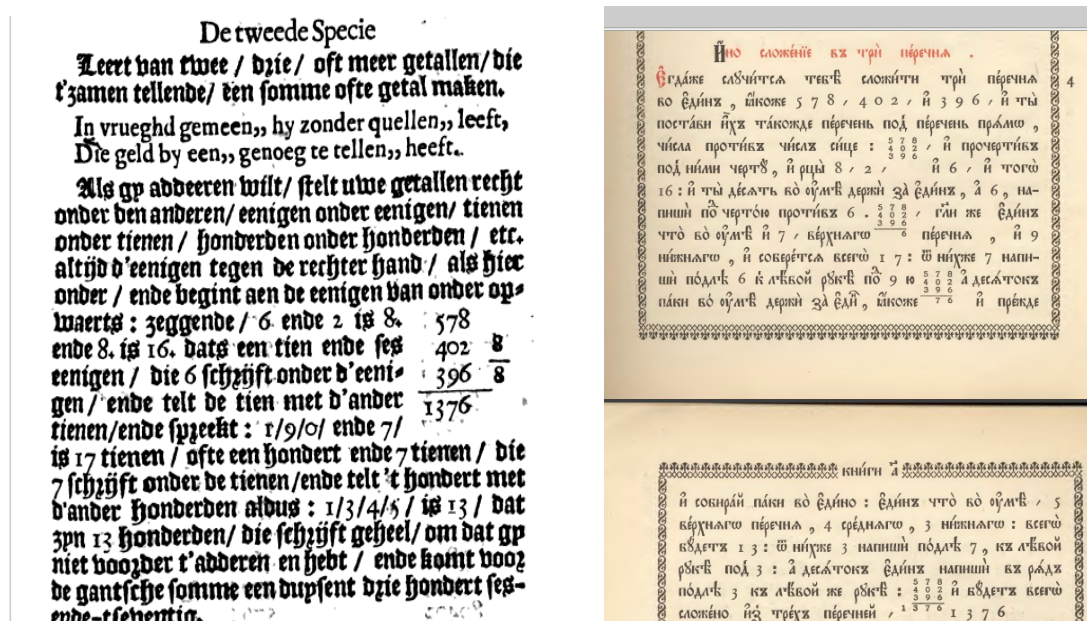 De tweede Specie
Leert van twee / drie / oft meer getallen/ die
t'zamen tellende/ een somme ofte getal maken.
In vrueghd gemeen,, hy zonder quellen,, leeft,
Die geld by een,, genoeg te tellen,, heeft.
Als gy addeeren wilt/ stelt uwe getallen recht
onder den anderen/ eenigen onder eenigen/ tienen
onder tienen / honderden onder honderden / etc.
altijd d'eenigen tegen de rechter hand / als hier
onder / ende begint aen de eenigen van onder op-
waerts : zeggende / 6 ende 2 is 8. 578
ende 8. is 16. dats een tien ende ses 402 8
eenigen / die 6 schrijft onder d'eeni- 396 8
gen / ende telt de tien met d'ander 1376
tienen/ende spreekt : 1/9/0/ ende 7/
is 17 tienen / ofte een hondert ende 7 tienen / die
7 schrijft onder de tienen/ende telt 't hondert met
d'ander honderden aldus : 1/3/4/5 / is 13 / dat
zyn 13 honderden/ die schrijft geheel/ om dat gy
niet voorder t'adderen en hebt / ende komt voor
de gantsche somme een duysent drie hondert ses-
ende-tseventig.
И҆́но сложе́нїе въ трѝ пе́речнѧ .
Е҆гда́же слꙋчи́тсѧ тебѣ̀ сложи́ти трѝ пе́речнѧ 4
во є҆ди́нъ , ꙗ҆́коже 5 7 8 , 4 0 2 , и҆ 3 9 6 , и҆ ты̀
поста́ви и҆̀хъ та́кожде пе́речень под̾ пе́речень прѧ́мѡ ,
чи́сла проти́въ чи́слъ си́це : 5 7 8 4 0 2 3 9 6 , и҆ прочерти́въ
под̾ ни́ми чертꙋ̀ , и҆ рцы̀ 8 , 2 , и҆ 6 , и҆ тогѡ̀
16 : и҆ ты̀ де́сѧть во ᲂу҆мѣ̀ держѝ за̀ є҆ди́нъ , а҆ 6 , на-
пишѝ по̀д чертою проти́въ 6 . 5 7 8 4 0 2 3 9 6 6 , гл҃и же є҆ди́нъ
что̀ во ᲂу҆мѣ̀ и҆ 7 , ве́рхнѧгѡ пе́речнѧ , и҆ 9
ни́жнѧгѡ , и҆ собере́тсѧ всегѡ̀ 1 7 : ѿ ни́хже 7 напи-
шѝ по́длѣ 6 к̾ лѣ́вой рꙋкѣ̀ по̀д 9 ю 5 7 8 4 0 2 3 9 6 7 6 а҆ десѧ́токъ
па́ки во ᲂу҆мѣ̀ держѝ за̀ є҆ди́н , ꙗ҆́коже и҆ пре́жде
кни́ги а҃
и҆ собира́й па́ки во є҆ди́но : є҆ди́нъ что̀ во ᲂу҆мѣ̀ , 5
ве́рхнѧгѡ пе́речнѧ , 4 сре́днѧгѡ , 3 ни́жнѧгѡ : всегѡ̀
бꙋ́детъ 1 3 : ѿ ни́хже 3 напишѝ по́длѣ 7 , къ лѣ́вой
рꙋкѣ̀ под̾ 3 : а҆ десѧ́токъ є҆ди́нъ напишѝ въ рѧ́дъ
по́длѣ 3 къ лѣ́вой же рꙋкѣ̀ : 5 7 8 4 0 2 3 9 6 1 3 7 6 и҆ бꙋ́детъ всегѡ̀
сло́жено и҆з̾ тре́хъ пе́речней , 1 3 7 6